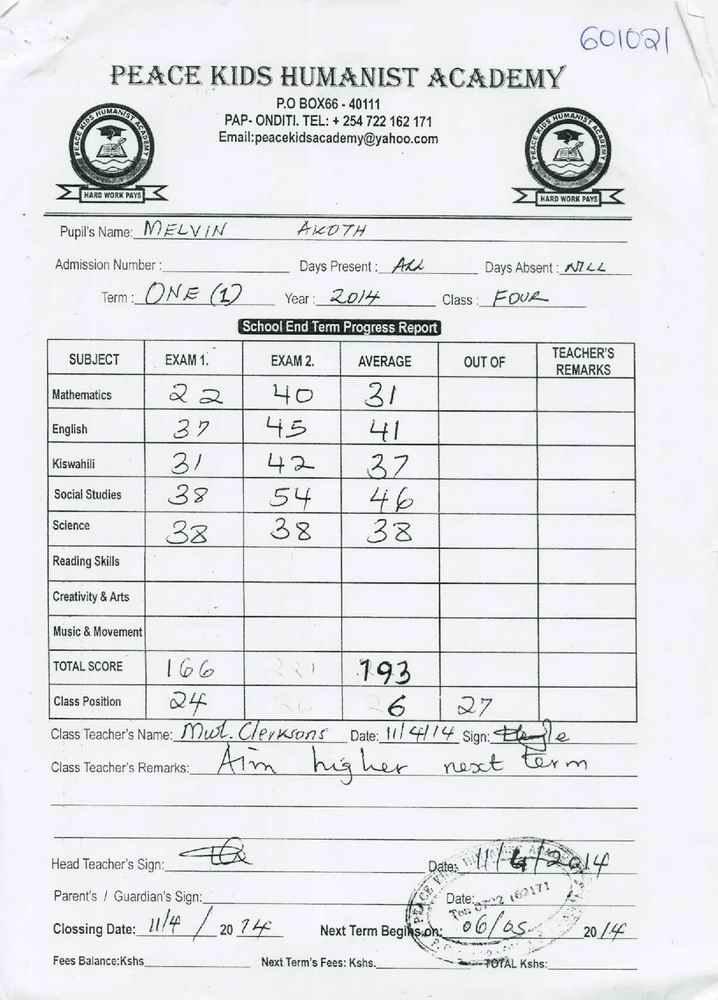 601021
PEACE KIDS HUMANIST ACADEMY
P.O BOX66 - 40111
PAP- ONDITI. TEL: + 254 722 162 171
Email:peacekidsacademy@yahoo.com
PEACE KIDS HUMANIST ACADEMY
HARD WORK PAYS
PEACE KIDS HUMANIST ACADEMY
HARD WORK PAYS
Pupil's Name: MELVIN AKOTH
Admission Number : Days Present : ALL Days Absent : NILL
Term : ONE (1) Year : 2014 Class : FOUR
School End Term Progress Report
SUBJECT EXAM 1. EXAM 2. AVERAGE OUT OF TEACHER'S REMARKS
Mathematics 22 40 31
English 37 45 41
Kiswahili 31 42 37
Social Studies 38 54 46
Science 38 38 38
Reading Skills
Creativity & Arts
Music & Movement
TOTAL SCORE 166 193
Class Position 24 6 27
Class Teacher's Name: Mwl. Clerksons Date: 11/4/14 Sign:
Class Teacher's Remarks: Aim higher next term
Head Teacher's Sign: Date: 11/4/2014
Parent's / Guardian's Sign: Date:
Clossing Date: 11/4 / 20 14 Next Term Begins on: 06/05 20 14
Fees Balance:Kshs. Next Term's Fees: Kshs. TOTAL Kshs: